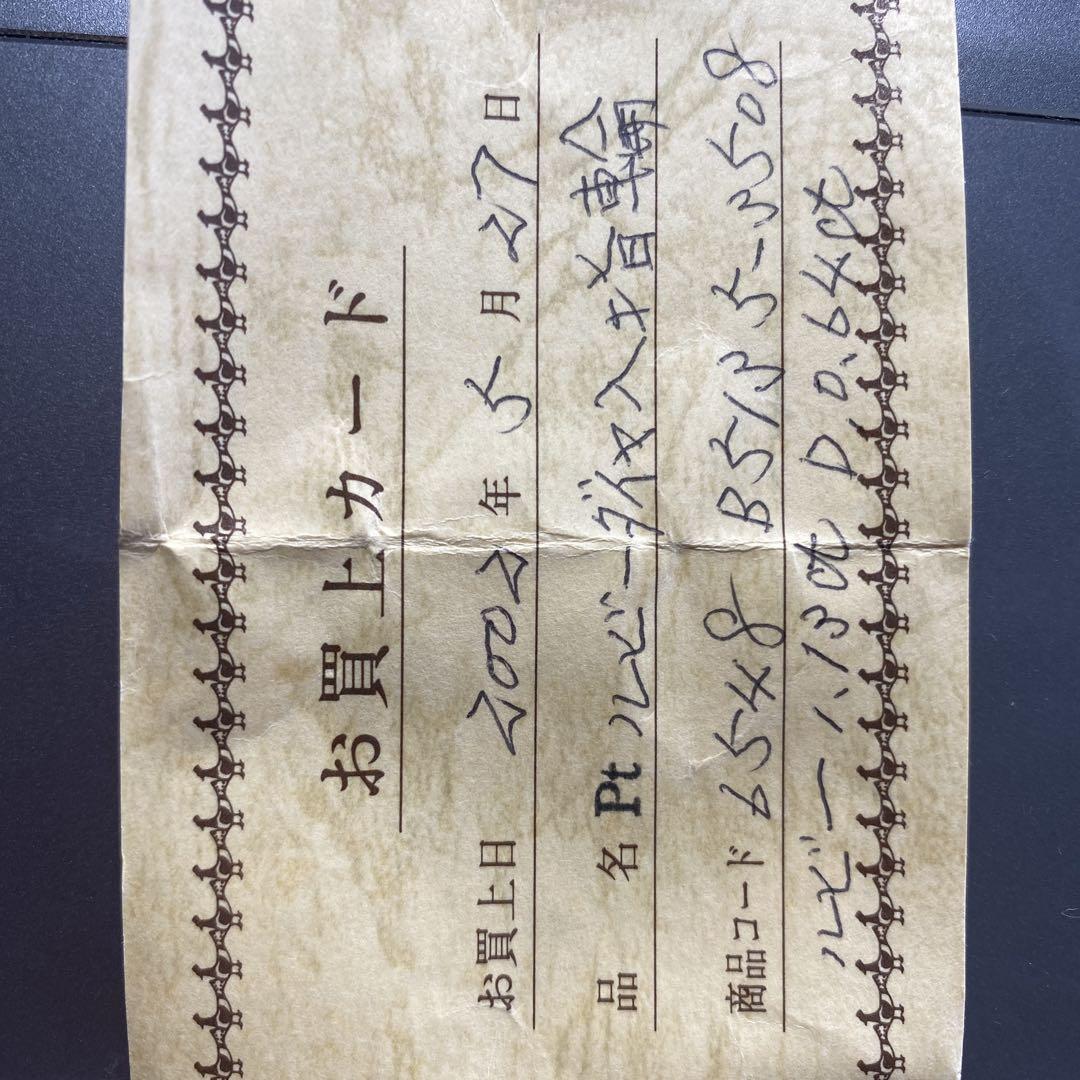 お買上カード
お買上日 2002年 5月 27日
品名 Pt ルビーダイヤ入指輪
商品コード 6548 B5135-3508
ルビー 1.13ct D 0.64ct